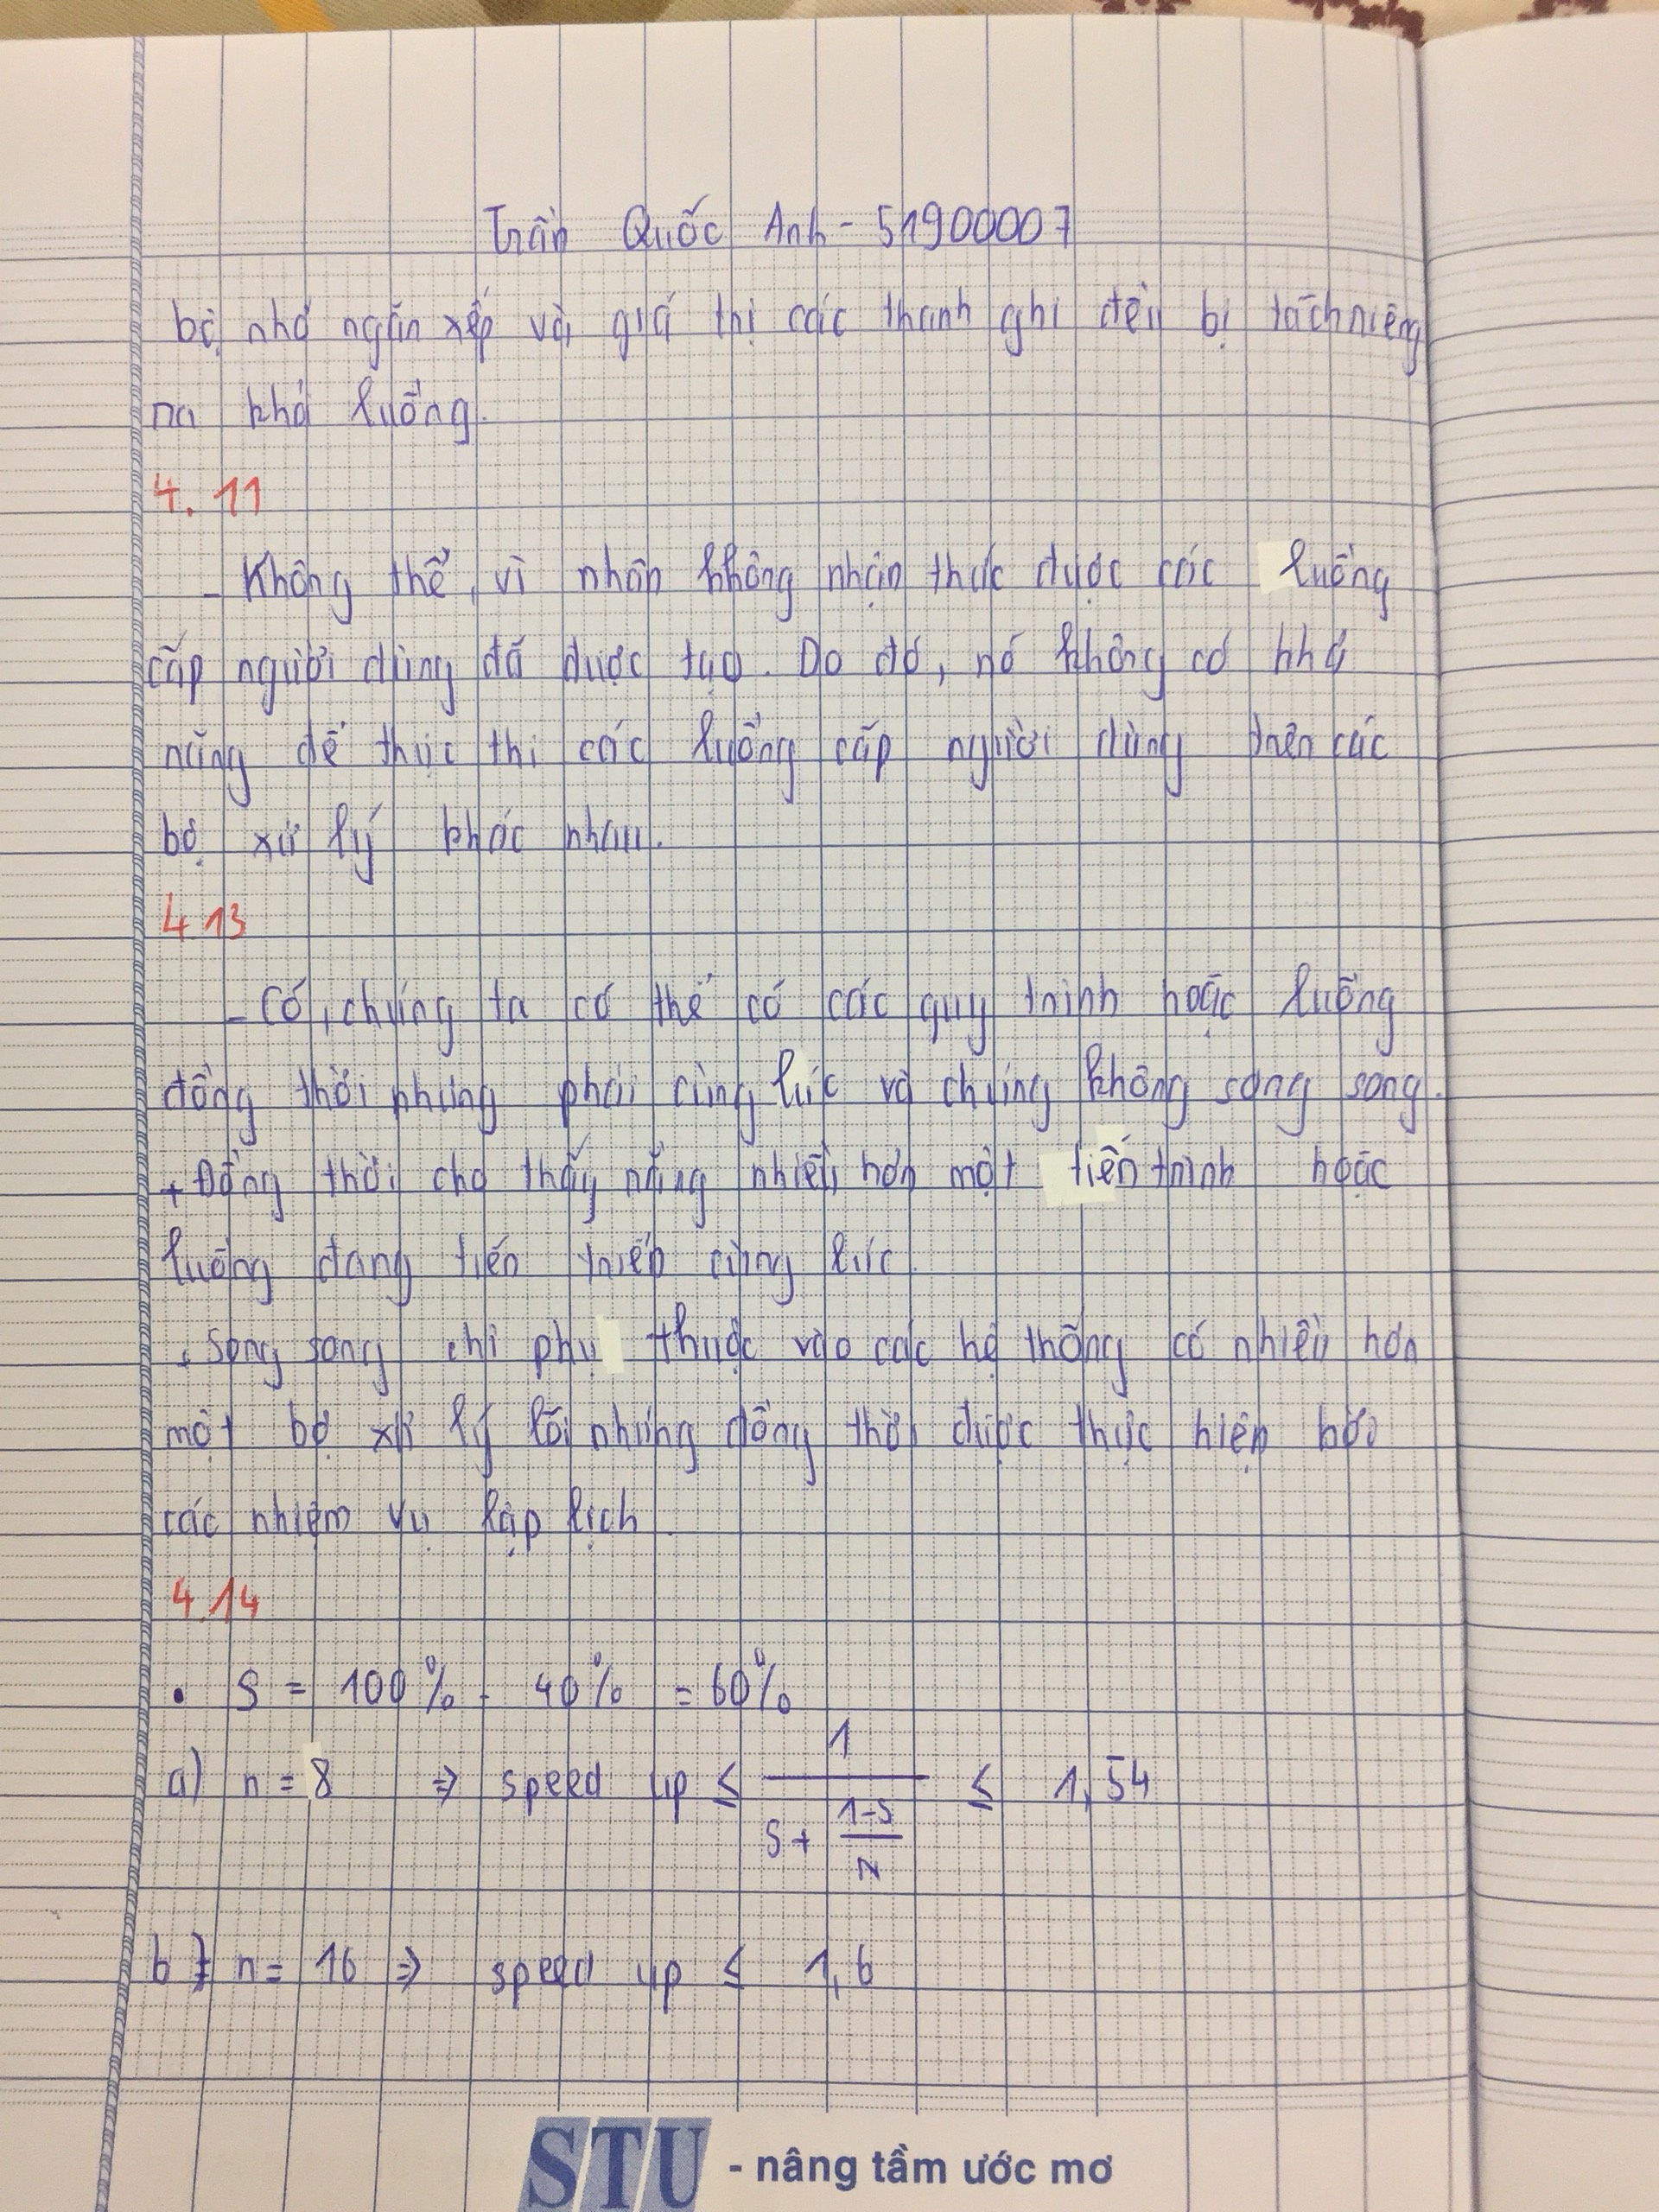 Trần Quốc Anh - 51900007
bộ nhớ ngăn xếp và giá thị các thanh ghi đều bị tách riêng
ra khỏi luồng.
4.11
- Không thể, vì nhân không nhận thức được các luồng
cấp người dùng đã được tạo. Do đó, nó không có khả
năng để thực thi các luồng cấp người dùng trên các
bộ xử lý khác nhau.
4.13
- Có, chúng ta có thể có các quy trình hoặc luồng
đồng thời nhưng phải cùng lúc và chúng không song song.
+ Đồng thời cho thấy rằng nhiều hơn một tiến trình hoặc
luồng đang tiến triển cùng lúc.
+ song song chỉ phụ thuộc vào các hệ thống có nhiều hơn
một bộ xử lý lõi nhưng đồng thời được thực hiện bởi
các nhiệm vụ lập lịch.
4.14
• S = 100% - 40% = 60%
a) n = 8 ⇒ speed up ≤ 1 / (S + (1-S)/N) ≤ 1,54
b) n = 16 ⇒ speed up ≤ 1,6
STU - nâng tầm ước mơ